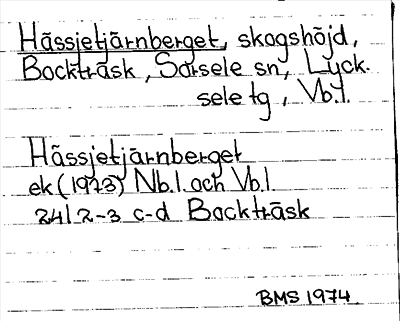 Hässjetjärnberget, skogshöjd,
Bockträsk, Sorsele sn, Lyck-
sele tg, Vb.l.
Hässjetjärnberget
ek (1973) Nb.l. och Vb.l.
24I 2-3 c-d Bockträsk
BMS 1974